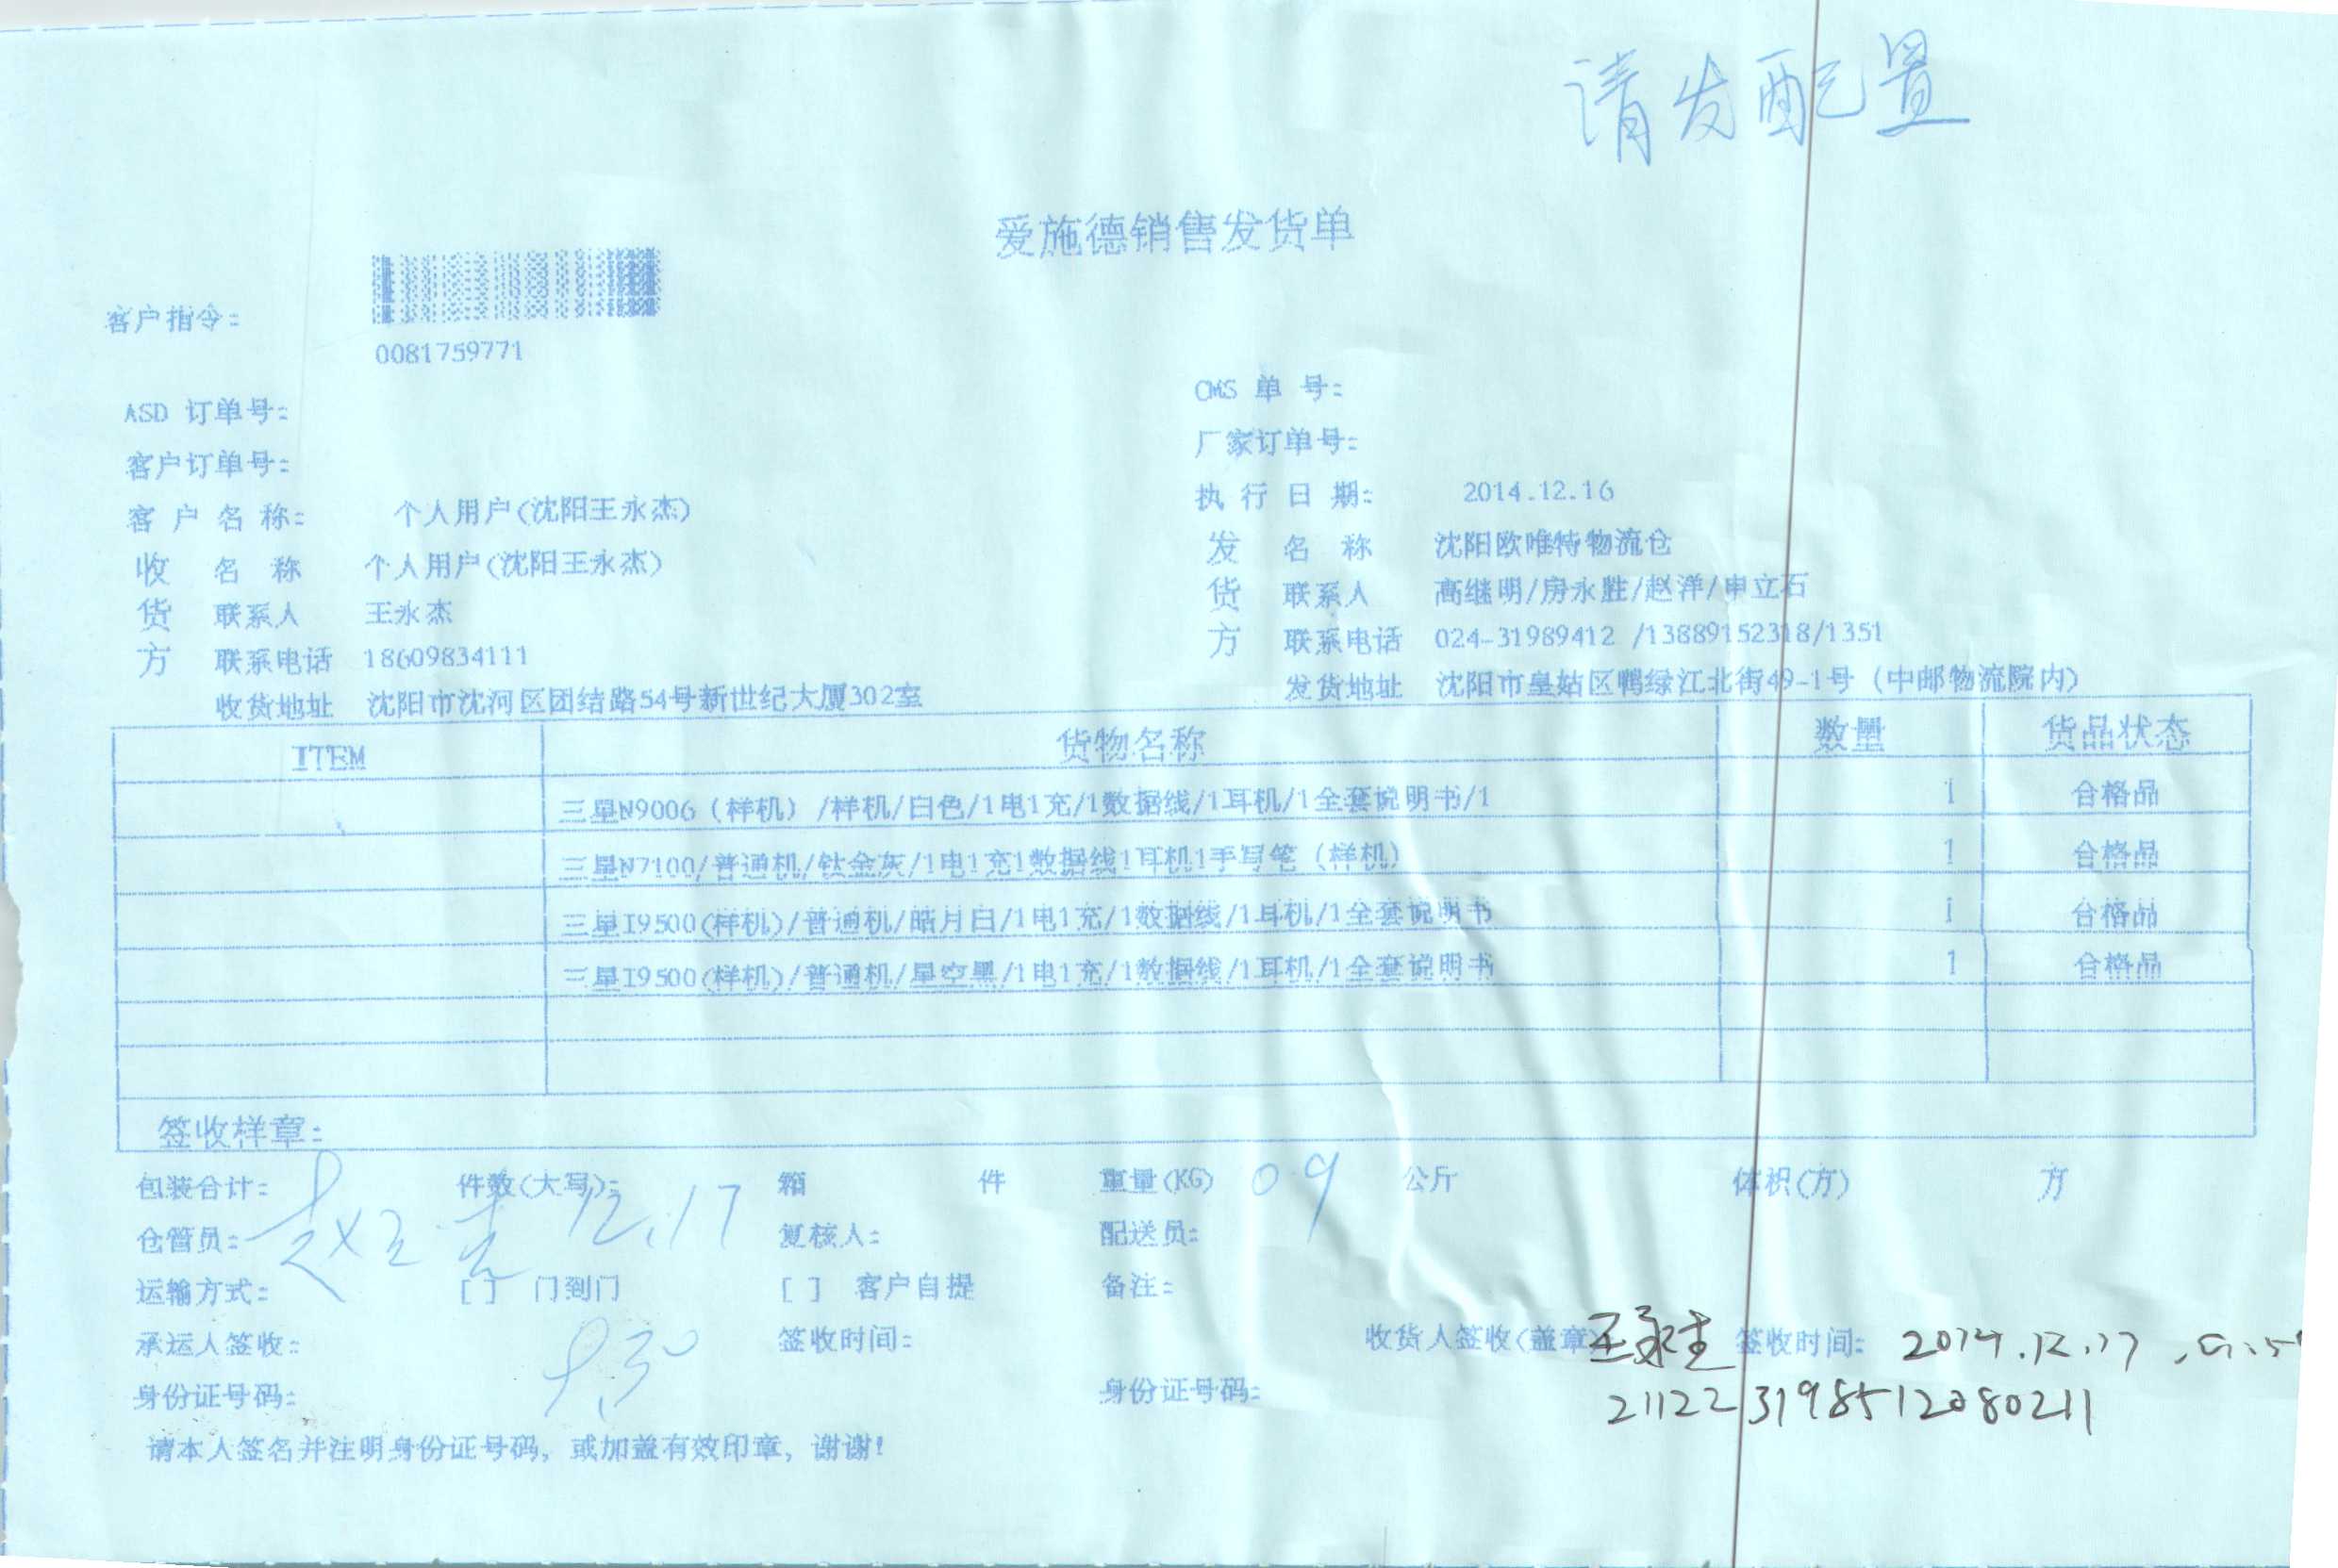 请发配置
爱施德销售发货单
客户指令:
0081759771
ASD 订单号: CMS 单 号:
客户订单号: 厂家订单号:
客 户 名 称: 个人用户(沈阳王永杰) 执 行 日 期: 2014.12.16
收 名 称 个人用户(沈阳王永杰) 发 名 称 沈阳欧唯特物流仓
货 联系人 王永杰 货 联系人 高继明/房永胜/赵洋/申立石
方 联系电话 18609834111 方 联系电话 024-31989412 /13889152318/1351
收货地址 沈阳市沈河区团结路54号新世纪大厦302室 发货地址 沈阳市皇姑区鸭绿江北街49-1号 (中邮物流院内)
ITEM 货物名称 数量 货品状态
三星N9006 (样机) /样机/白色/1电1充/1数据线/1耳机/1全套说明书/1 1 合格品
三星N7100/普通机/钛金灰/1电1充1数据线1耳机1手写笔 (样机) 1 合格品
三星I9500(样机)/普通机/皓月白/1电1充/1数据线/1耳机/1全套说明书 1 合格品
三星I9500(样机)/普通机/星空黑/1电1充/1数据线/1耳机/1全套说明书 1 合格品
签收样章:
包装合计: 件数(大写): 箱 件 重量(KG) 0.9 公斤 体积(方) 方
仓管员: 12.17 复核人: 配送员:
运输方式: [ ] 门到门 [ ] 客户自提 备注:
承运人签收: 9.30 签收时间: 收货人签收(盖章 王永杰 签收时间: 2014.12.17
身份证号码: 身份证号码: 211223198512080211
请本人签名并注明身份证号码, 或加盖有效印章, 谢谢!